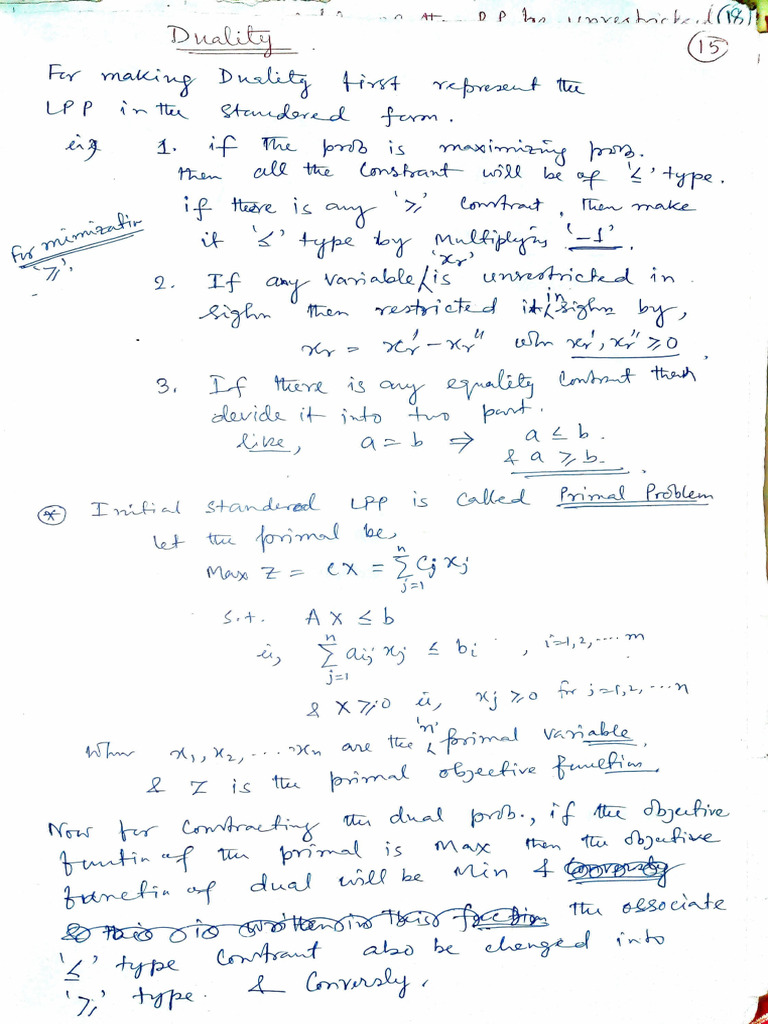 (18)
(15)
Duality
For making Duality first represent the
LPP in the standered form.
eig 1. if The prob is maximizing prob.
then all the Constrant will be of '≤' type.
if there is any '≥' Constract, then make
it '≤' type by Multiplying '-1'.
For mimization
'≥'.
2. If any variable 'xr' is unrestricted in
sighn then restricted it in sighn by,
xr = xr' - xr'' when xr', xr'' ≥ 0,
3. If there is any equality Contrant then
devide it into two part.
like, a = b ⇒ a ≤ b.
& a ≥ b.
* Initial standered LPP is called Primal Problem
let the primal be,
Max Z = cX = n∑j=1 Cj xj
s.t. AX ≤ b
ie, n∑j=1 aij xj ≤ bi, i=1,2,....m
& X ≥ 0 ie, xj ≥ 0 for j=1,2,...n
When x1, x2, ....xn are the 'n' primal variable
& Z is the primal objective function.
Now for Constracting the dual prob., if the objective
function of the primal is Max then the objective
function of dual will be Min & Conversly
& this is written in this the associate
'≤' type Constrant also be changed into
'≥' type. & Conversly.